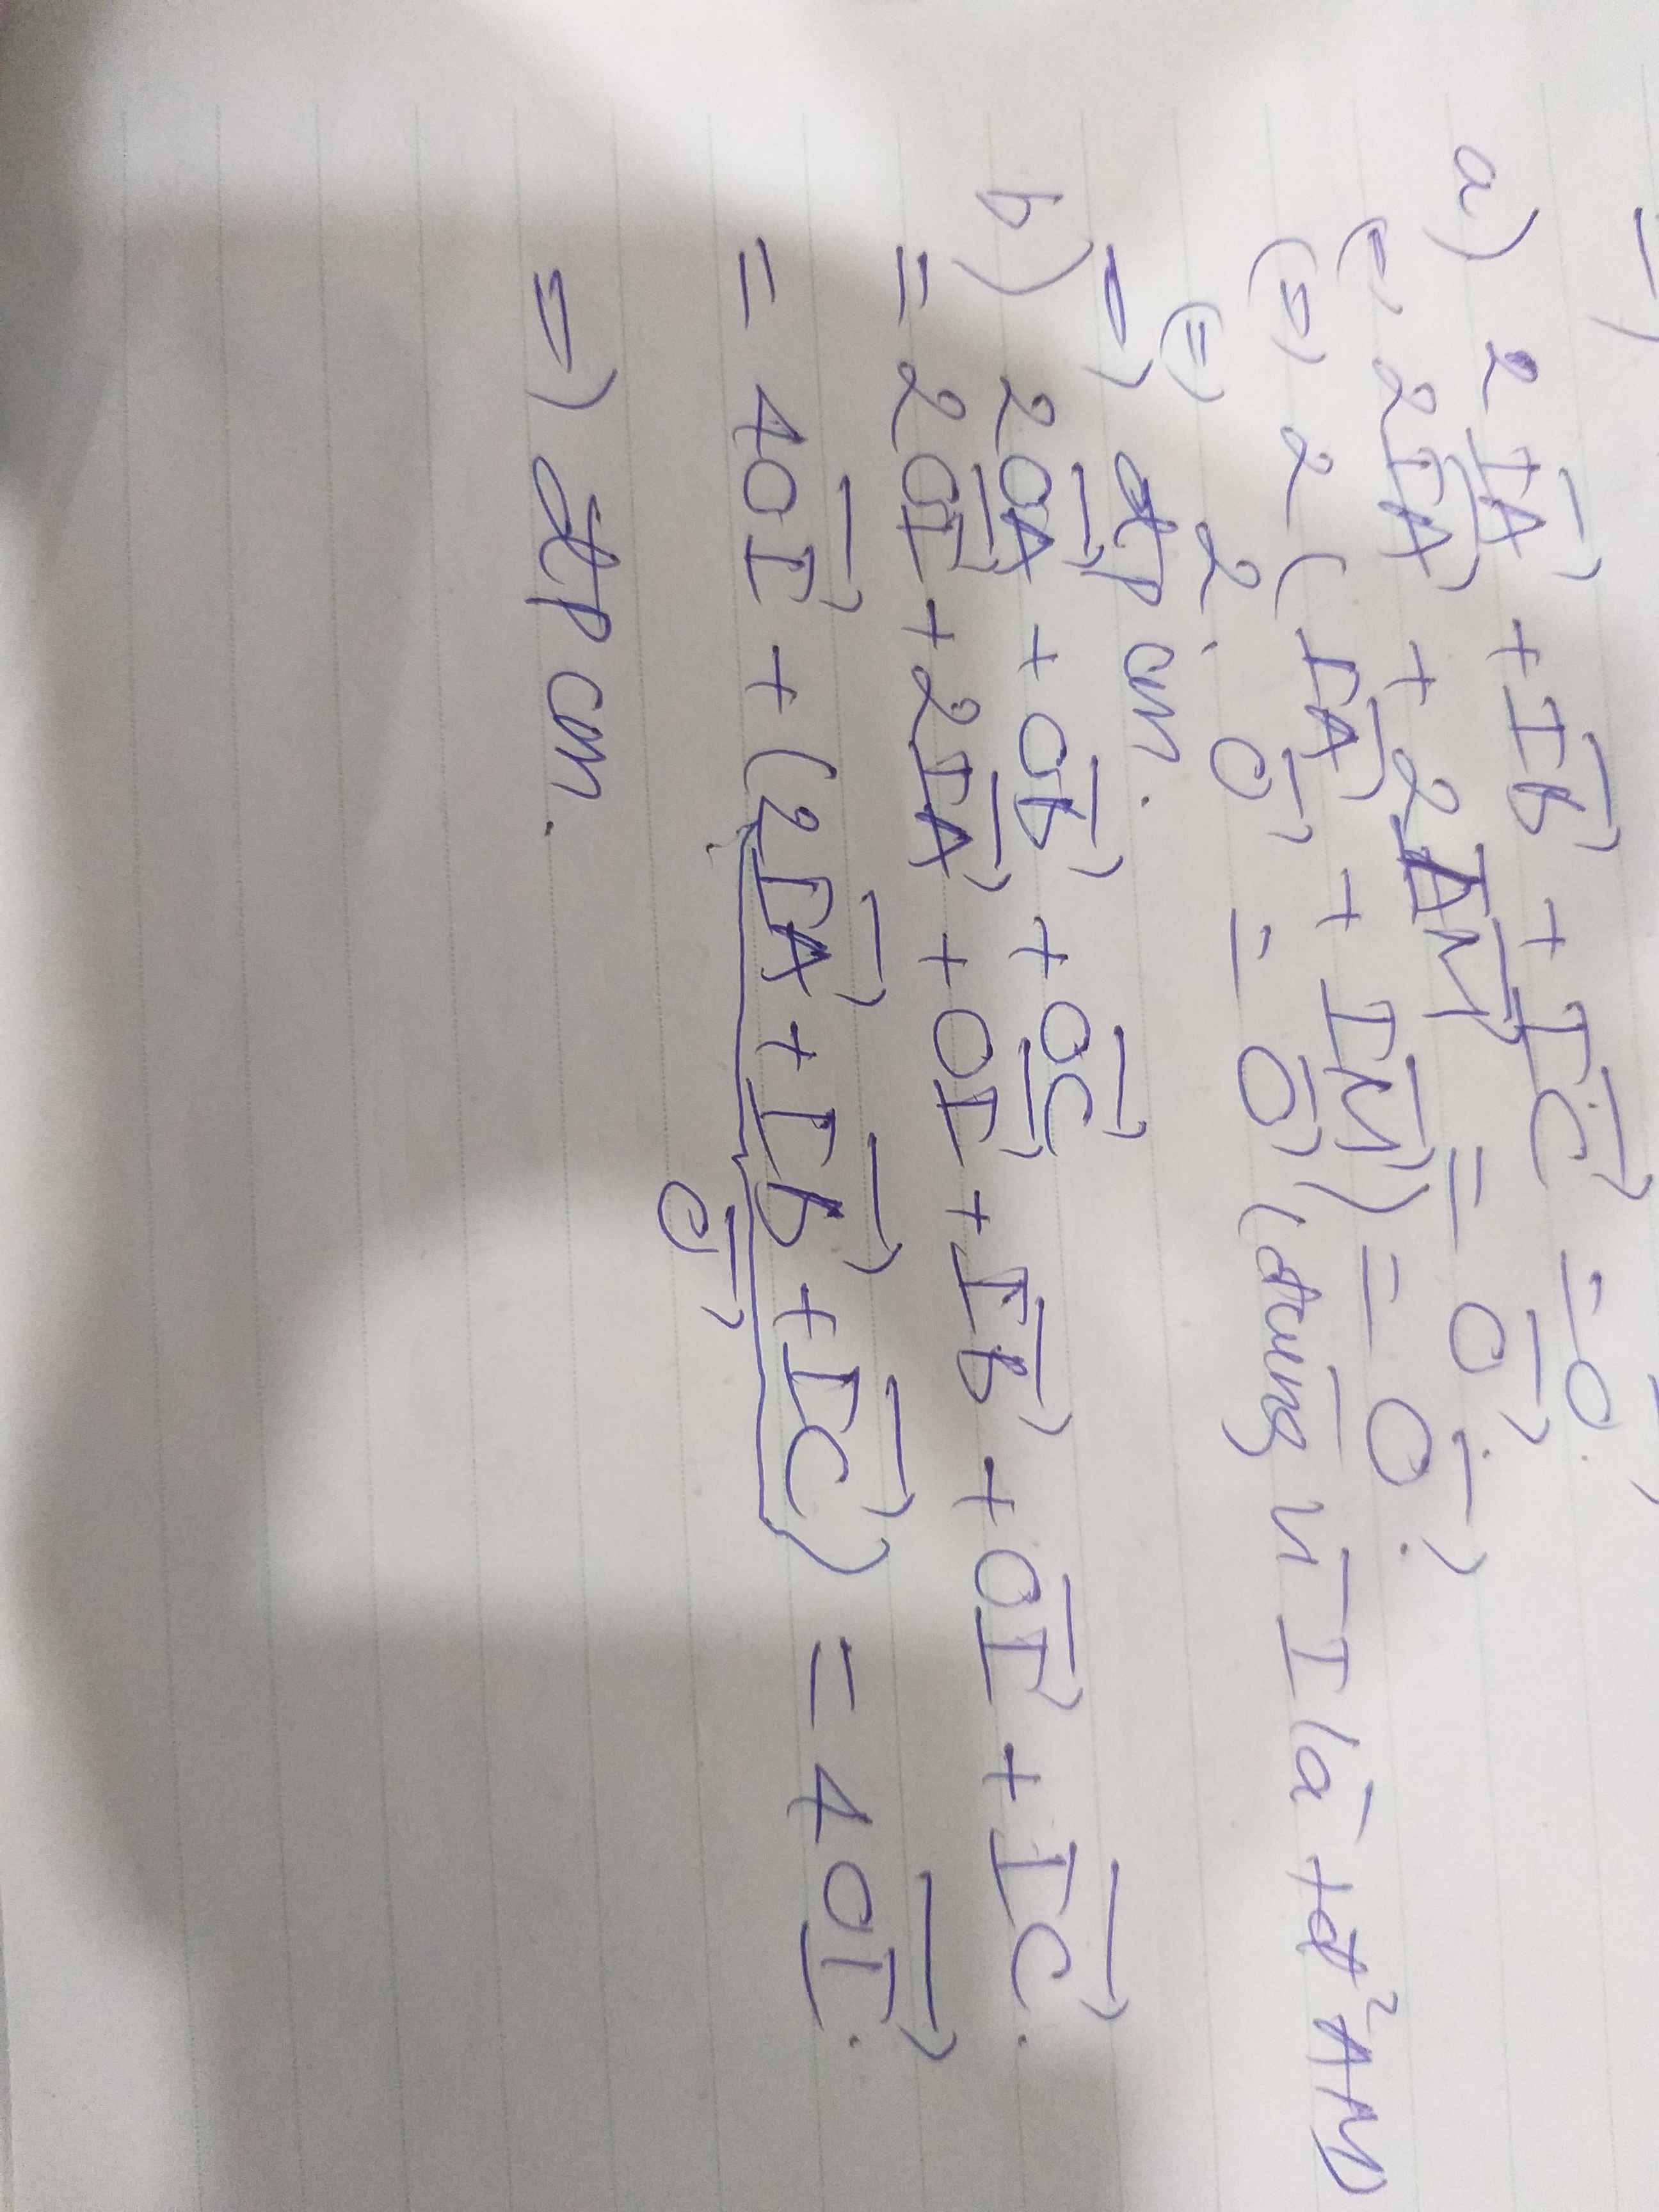 a) 2IA⃗ + IB⃗ + IC⃗ = 0⃗.
(=) 2IA⃗ + 2IM⃗ = 0⃗
(=) 2(IA⃗ + IM⃗) = 0⃗
(=) 2.0⃗ = 0⃗ (đúng vì I là tđ² AM)
=) đpcm.
b) 2OA⃗ + OB⃗ + OC⃗
= 2OI⃗ + 2IA⃗ + OI⃗ + IB⃗ + OI⃗ + IC⃗.
= 4OI⃗ + (2IA⃗ + IB⃗ + IC⃗) = 4OI⃗.
0⃗
=) đpcm.